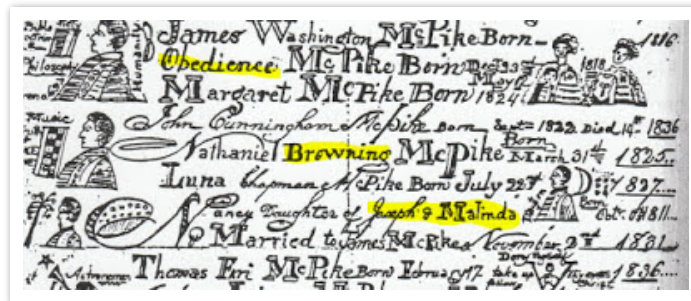 James Washington McPike Born 1816
Obedience McPike Born Dec 23rd 1818
Margaret McPike Born May 1824
Humanity
Music
John Cunningham McPike Born Sept 1822 Died 14th 1836
Nathaniel Browning McPike Born March 31st 1825
Luna Chapman McPike Born July 22nd 1827
Nancy Daughter of Joseph & Malinda Born Oct. 1811
Married to James McPike November 2nd 1831
Astronomer
Thomas Fin McPike Born February 17 1836